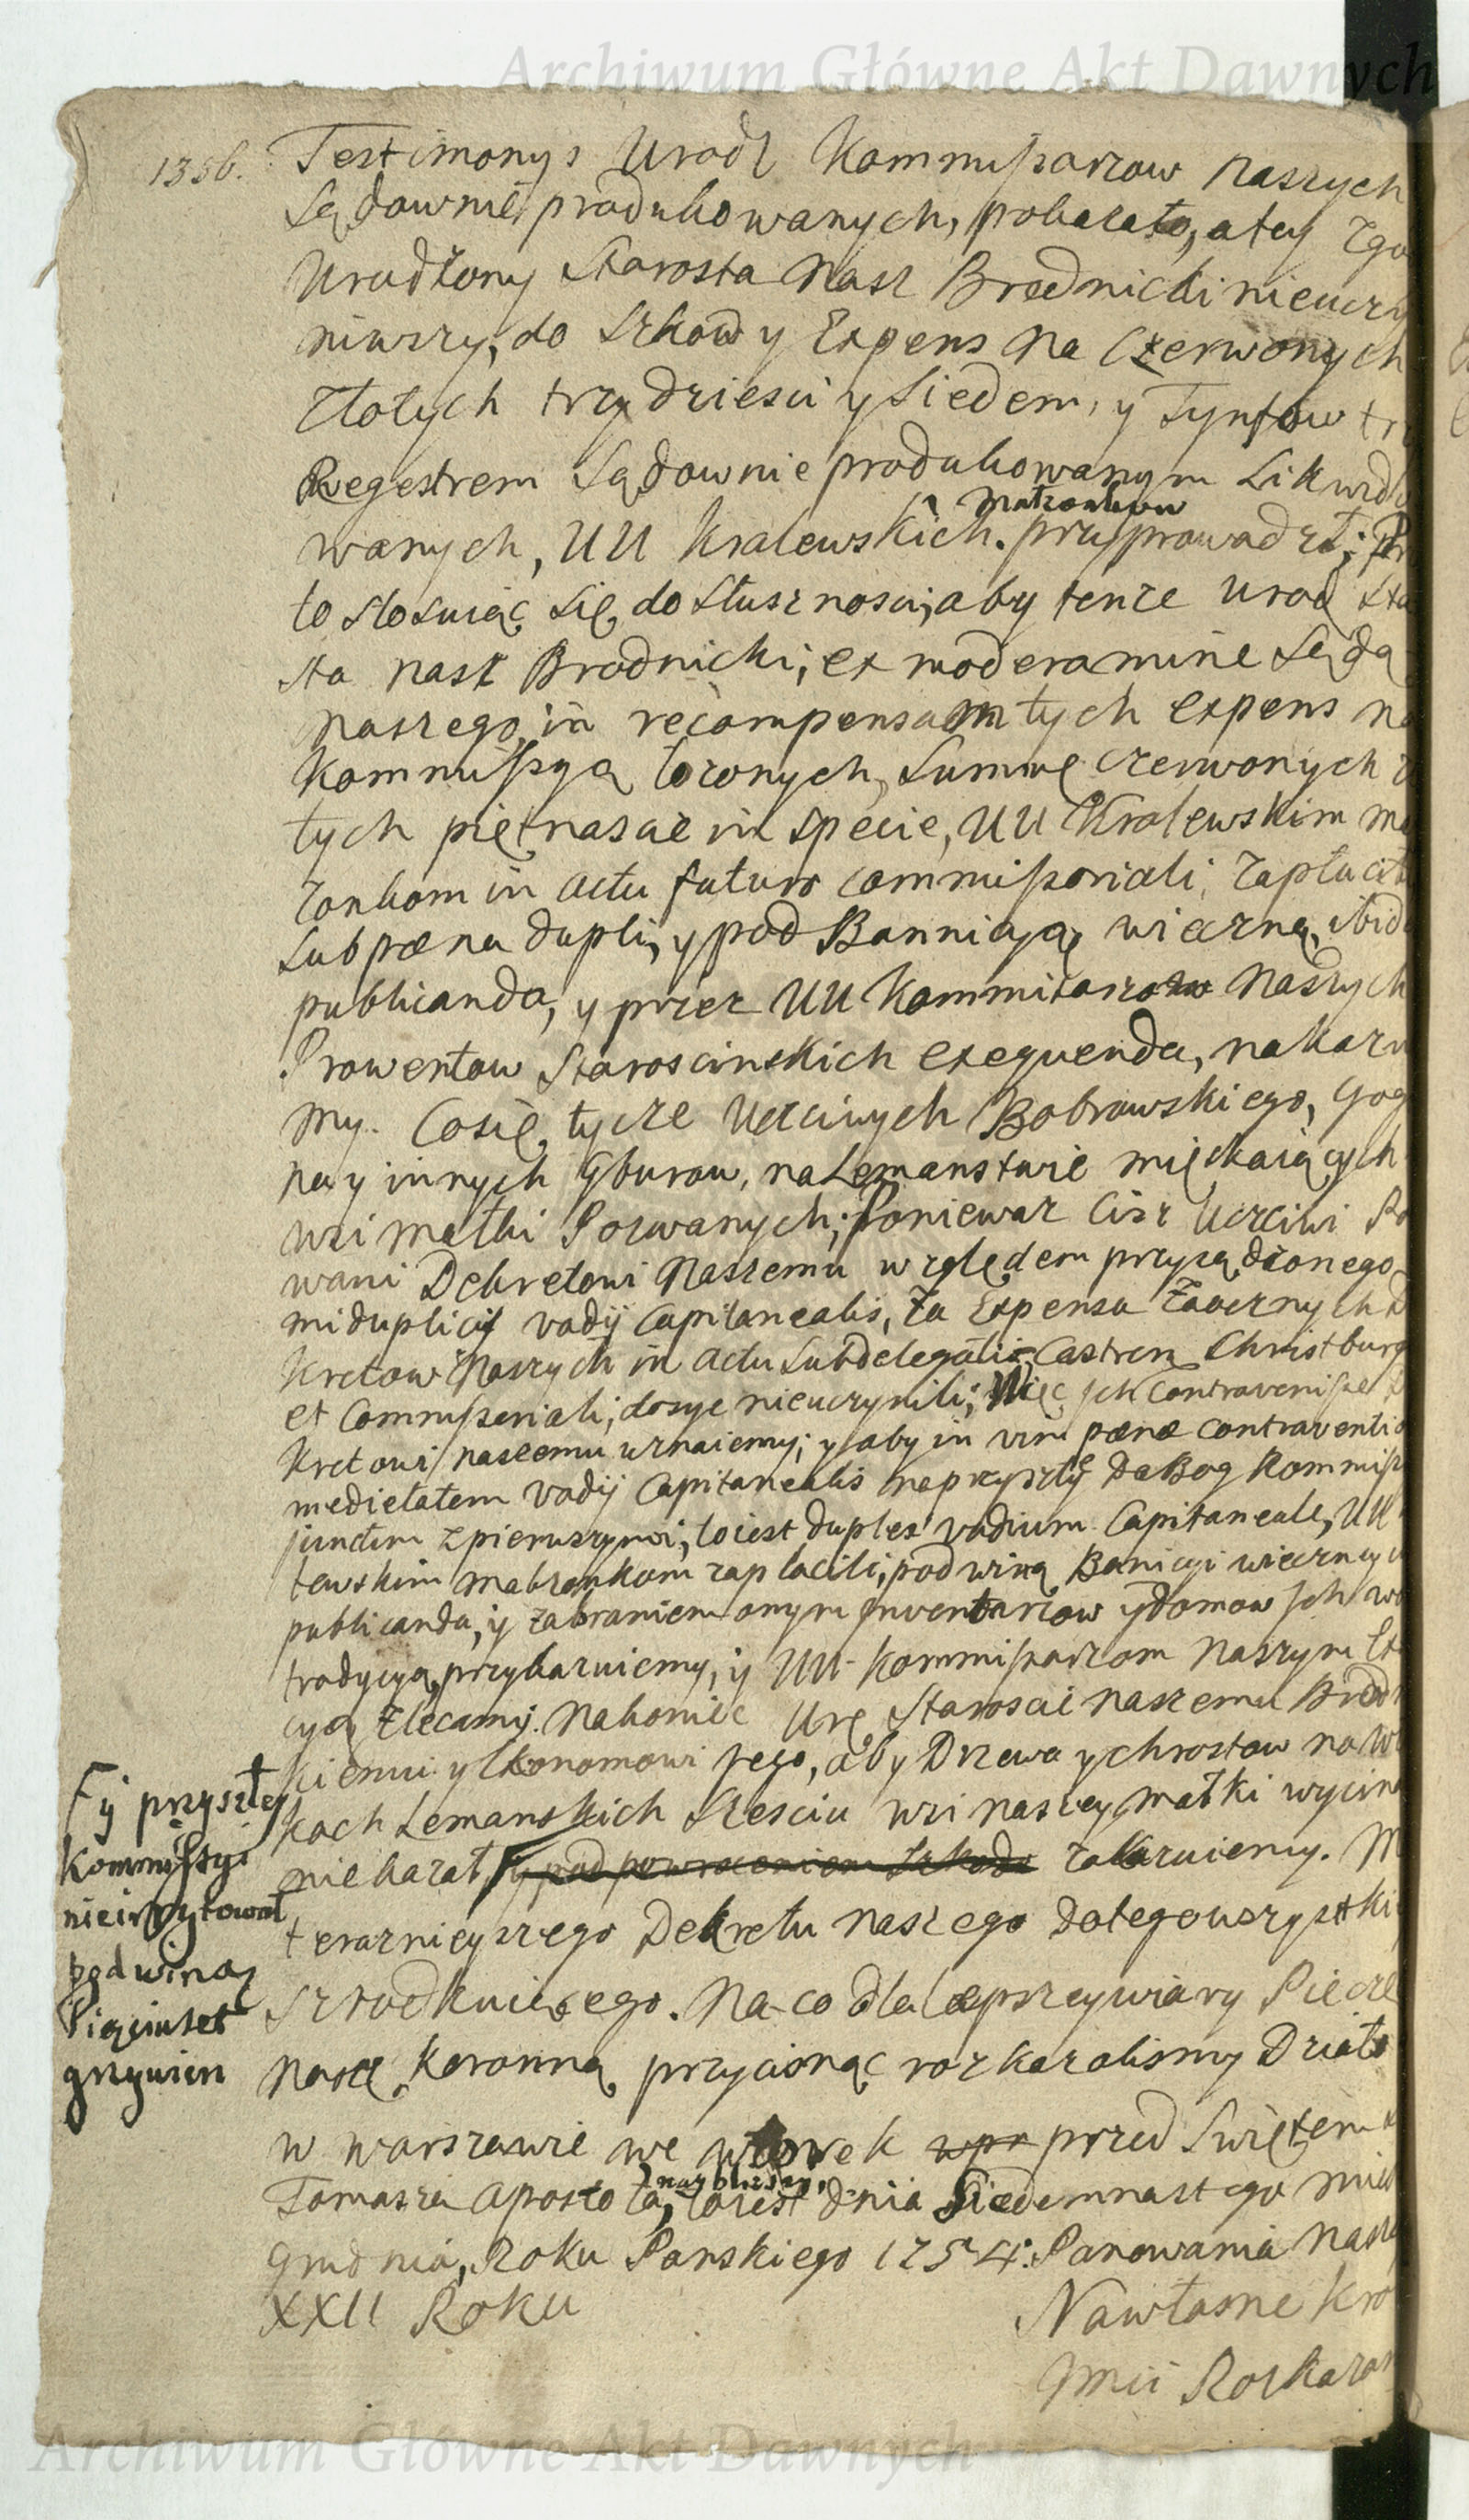 Archiwum Główne Akt Dawnych
1356. Testimonys Urodz Kommißarzow naszych
Sądownie produkowanych, pokazało, a tey Zgo
Urodzony Starosta Nasz Brodnicki nieuczy
niwszy, do Szkod y Expens na Czerwonych
Złotych trzydziesci y Siedem, y Tynfow tr
Regestrem Sądownie produkowanym Likwido
wanych, UU Kralewskich Małzonkow przyprowadził; Prze
to stosuiąc się do słusznosci, aby tenze Urod Sta
sta nasz Brodnicki, ex moderamine Sądu
naszego, in recompensam tych expens na
Kommißyą łozonych, Summę czerwonych z
tych piętnascie in specie, UU Kralewskim ma
zonkom in actu futuro commißoriali, zapłacił
sub pæna dupli, y pod Bannicyą wieczną, ibid
publicanda, y przez UU Kommisarzow Naszych
Prowentow Staroscinskich exequenda, nakazu
my. Cosię tycze Uczciwych Bobrowskiego, Gog
na y innych Gburow, na Lemanstwie mięszkaiących
wsi Matki Pozwanych; Poniewaz Ciz Uczciwi Po
wani Dekretowi Naszemu względem przysądzonego
mi duplicis vadij Capitanealis, za Expensa Zaocznych D
kretow Naszych in actu Subdelegatis Castren Christburg
et Commißoriali, dosyc nieuczynili; Więc ich contravenißæ D
kretowi naszemu uznaiemy; y aby in vim pænæ contraventio
medietatem vadij Capitanealis na przyszłey da Bog Kommiß
junctim z pierwszym, toiest duplex vadium Capitaneale, UU
lewskim Małzonkom zapłacili, pod winą Banicyi wieczney
publicanda, y zabraniem onym Inwentarzow y domow Ich w
tradycyą, przykazuiemy, y UU Kommißarzom Naszym Ex
cyą zlecamy. Nakoniec Urę Staroscie naszemu Brod
kiemu y Ekonomowi Jego, aby Drzewa y chrostow na W
kach Lemanskich Szesciu wsi naszey Matki wycina
nie kazał, y pod powroceniem Szkody zakazuiemy. M
F y przyszłey
Kommißyi
nieirrytował
pod winą
Pięciuset
grzywien
terazniejszego Dekretu naszego do tego wszystki
Szrodkuiącego. Na co dla lepszey wiary Pieczę
naszę Koronną przycisnąc rozkazalismy Działo
w Warszawie we wtorek wpr przed Swiętem
Tomasza Apostoła, nayblizszy, toiest dnia Siedemnastego mie
Grudnia, Roku Panskiego 1754. Panowania Nasze
XXII Roku
Nawłasne Kro
Jmci Rozkazan
Archiwum Główne Akt Dawnych